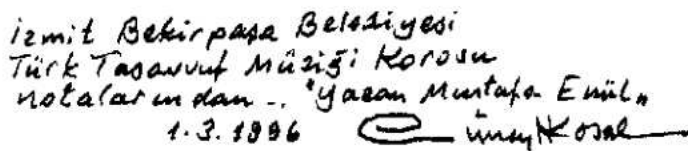 İzmit Bekirpaşa Belediyesi
Türk Tasavvuf Müziği Korosu
notalarından .. "yazan Mustafa Enül"
1.3.1996 Cüneyt Kosal